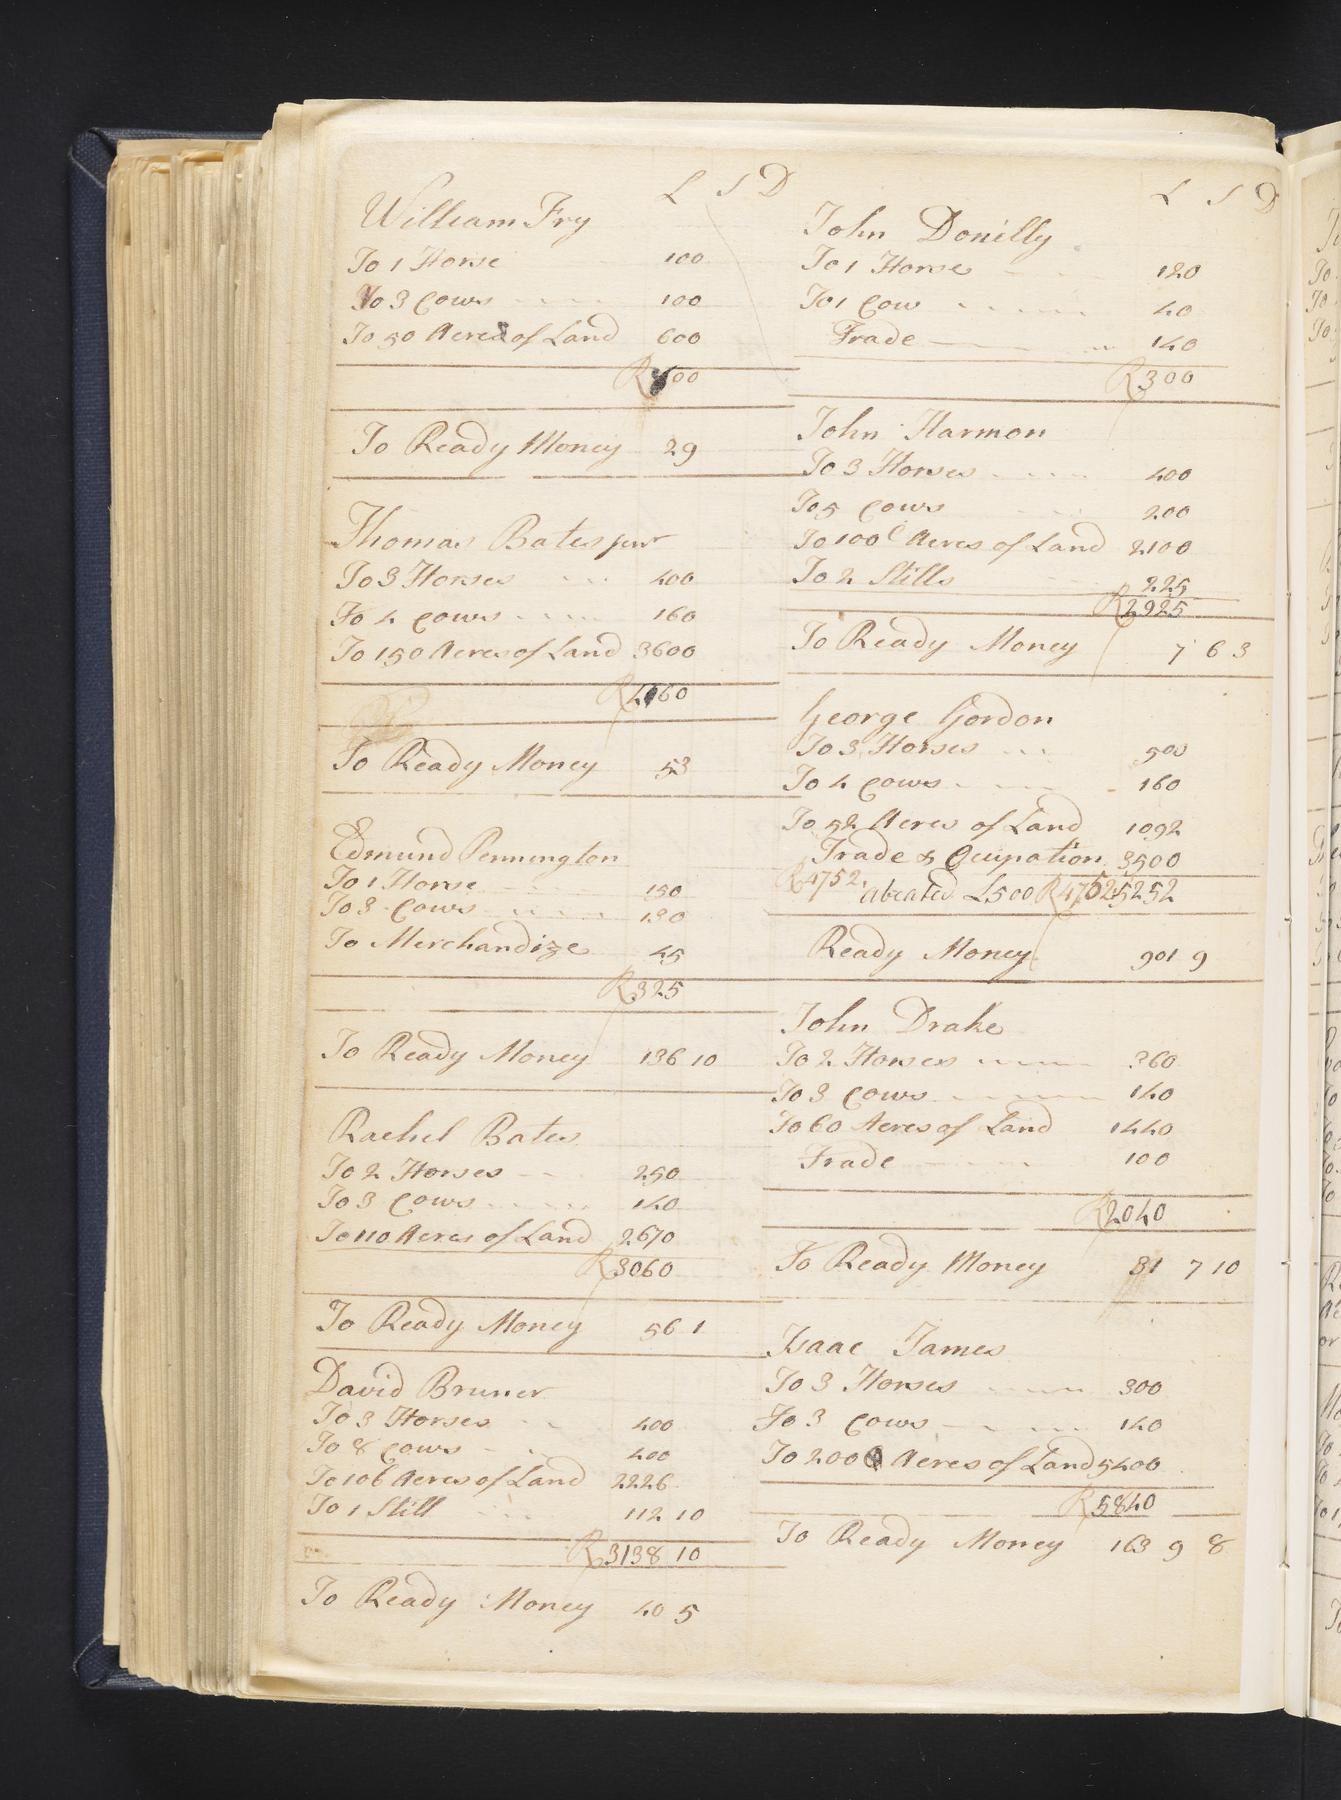 L S D
William Fry
To 1 Horse 100
To 3 Cows 100
To 50 Acres of Land 600
R 800
To Ready Money 29
Thomas Bates junr
To 3 Horses 400
To 4 Cows 160
To 150 Acres of Land 3600
R 4160
To Ready Money 53
Edmund Pennington
To 1 Horse 150
To 3 Cows 130
To Merchandize 45
R 325
To Ready Money 136 10
Rachel Bates
To 2 Horses 250
To 3 Cows 140
To 110 Acres of Land 2670
R 3060
To Ready Money 56 1
David Bruner
To 3 Horses 400
To 8 Cows 400
To 106 Acres of Land 2226
To 1 Still 112 10
R 3138 10
To Ready Money 40 5
L S D
John Donilly
To 1 Horse 120
To 1 Cow 40
Trade 140
R 300
John Harmon
To 3 Horses 400
To 5 Cows 200
To 100 Acres of Land 2100
To 2 Stills 225
R 2925
To Ready Money 7 6 3
George Gordon
To 3 Horses 500
To 4 Cows 160
To 52 Acres of Land 1092
Trade & Ocupation 3500
R 4752 abeated £500 R 4752 5252
Ready Money 901 9
John Drake
To 2 Horses 360
To 3 Cows 140
To 60 Acres of Land 1440
Trade 100
R 2040
To Ready Money 81 7 10
Isaac James
To 3 Horses 300
To 3 Cows 140
To 200 Acres of Land 5400
R 5840
To Ready Money 163 9 8